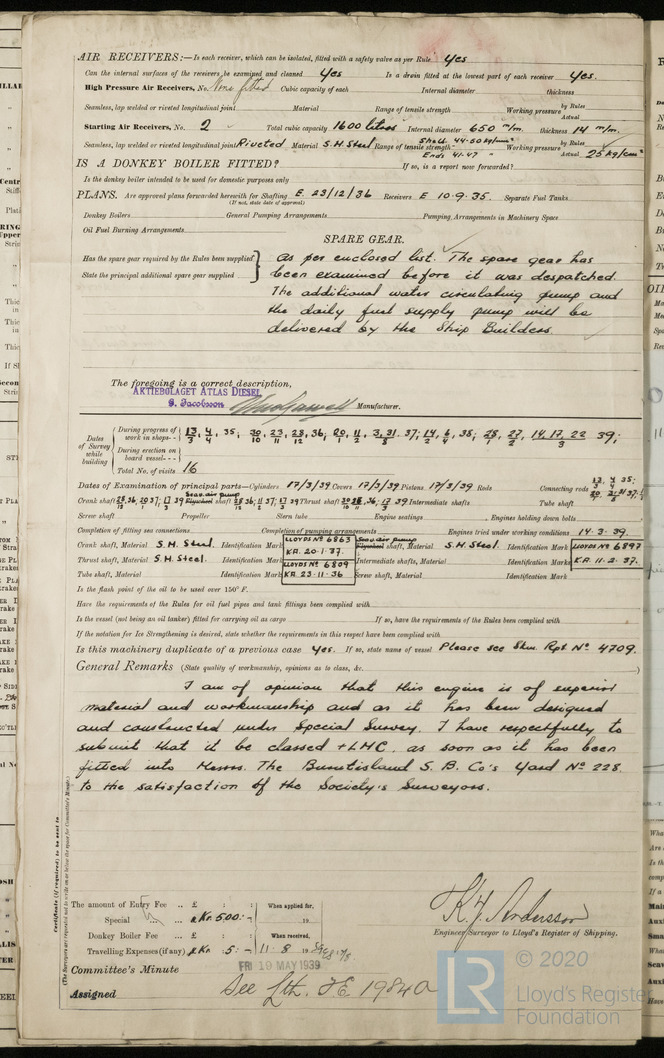 AIR RECEIVERS:—Is each receiver, which can be isolated, fitted with a safety valve as per Rule Yes
Can the internal surfaces of the receivers be examined and cleaned Yes Is a drain fitted at the lowest part of each receiver Yes.
High Pressure Air Receivers, No. None fitted Cubic capacity of each Internal diameter thickness
Seamless, lap welded or riveted longitudinal joint Material Range of tensile strength Working pressure by Rules Actual
Starting Air Receivers, No. 2 Total cubic capacity 1600 litres Internal diameter 650 m/m. thickness 14 m/m.
Seamless, lap welded or riveted longitudinal joint Riveted Material S.H. Steel Range of tensile strength Shell 44-50 kg/mm² Ends 41-47 " Working pressure by Rules Actual 25 kg/cm²
IS A DONKEY BOILER FITTED? If so, is a report now forwarded?
Is the donkey boiler intended to be used for domestic purposes only
PLANS. Are approved plans forwarded herewith for Shafting E. 23/12/36 Receivers E 10.9.35. Separate Fuel Tanks
(If not, state date of approval)
Donkey Boilers General Pumping Arrangements Pumping Arrangements in Machinery Space
Oil Fuel Burning Arrangements
SPARE GEAR.
Has the spare gear required by the Rules been supplied as per enclosed list. The spare gear has
State the principal additional spare gear supplied been examined before it was despatched.
The additional water circulating pump and
the daily fuel supply pump will be
delivered by the Ship Builders.
The foregoing is a correct description,
AKTIEBOLAGET ATLAS DIESEL
G. Jacobsson Manufacturer.
Dates of Survey while building
During progress of work in shops - - 13/3, 4/4, 35; 30/10, 23/11, 28/12, 36; 20/1, 11/2, 3, 31/5. 37; 14/2, 6/4, 38; 28/1, 27/2, 14, 17, 22/3 39;
During erection on board vessel - - -
Total No. of visits 16
Dates of Examination of principal parts—Cylinders 17/3/39 Covers 17/3/39 Pistons 17/3/39 Rods Connecting rods
Crank shaft Scav. air pump Flywheel shaft Thrust shaft Intermediate shafts Tube shaft
Screw shaft Propeller Stern tube Engine seatings Engines holding down bolts
Completion of fitting sea connections Completion of pumping arrangements Engines tried under working conditions 14.3.39.
Crank shaft, Material S.H. Steel. Identification Mark LLOYDS Nº 6863 KA. 20.1.37. Scav. air pump Flywheel shaft, Material S.H. Steel. Identification Mark LLOYDS Nº 6897
Thrust shaft, Material S.H. Steel. Identification Mark LLOYDS Nº 6809 Intermediate shafts, Material Identification Marks KA. 11.2.37.
Tube shaft, Material Identification Mark KA. 23.11.36 Screw shaft, Material Identification Mark
Is the flash point of the oil to be used over 150° F.
Have the requirements of the Rules for oil fuel pipes and tank fittings been complied with
Is the vessel (not being an oil tanker) fitted for carrying oil as cargo If so, have the requirements of the Rules been complied with
If the notation for Ice Strengthening is desired, state whether the requirements in this respect have been complied with
Is this machinery duplicate of a previous case Yes. If so, state name of vessel Please see Shm. Rpt Nº 4709.
General Remarks (State quality of workmanship, opinions as to class, &c.
I am of opinion that this engine is of superior
material and workmanship and as it has been designed
and constructed under Special Survey. I have respectfully to
submit that it be classed +LMC. as soon as it has been
fitted into Messrs. The Burntisland S. B. Co's Yard Nº 228.
to the satisfaction of the Society's Surveyors.
Certificate (if required) to be sent to
(The Surveyors are requested not to write on or below the space for Committee's Minute.)
The amount of Entry Fee .. £ : : When applied for,
Special .. £ Kr. 500: - 19
Donkey Boiler Fee .. £ : : When received,
Travelling Expenses (if any) £ Kr : 5: - 11.8 19
K. J. Andersson
Engineer Surveyor to Lloyd's Register of Shipping.
Committee's Minute FRI 19 MAY 1939
Assigned See Lth. FE 19840
© 2020
LR
Lloyd's Register
Foundation